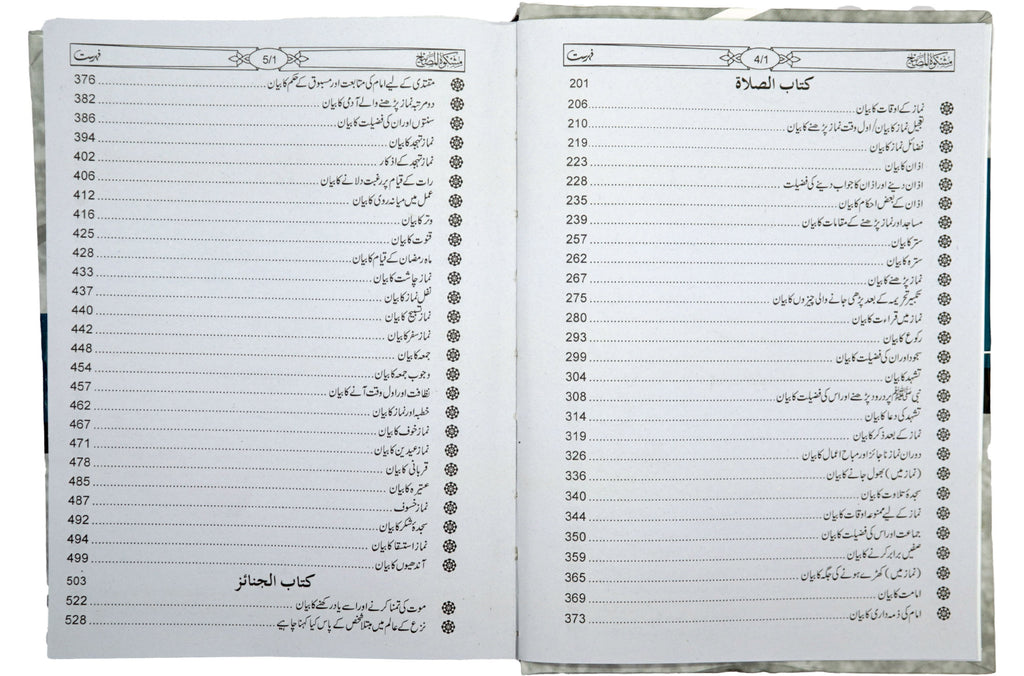 مشکوٰۃ المصابیح 4/1 فہرست
کتاب الصلاة 201
نماز کے اوقات کا بیان 206
تعجیل نماز کا بیان/ اول وقت نماز پڑھنے کا بیان 210
فضائل نماز کا بیان 219
اذان کا بیان 223
اذان دینے اور اذان کا جواب دینے کی فضیلت 228
اذان کے بعض احکام کا بیان 235
مساجد اور نماز پڑھنے کے مقامات کا بیان 239
ستر کا بیان 257
سترہ کا بیان 262
نماز پڑھنے کا بیان 267
تکبیر تحریمہ کے بعد پڑھی جانے والی چیزوں کا بیان 275
نماز میں قراءت کا بیان 280
رکوع کا بیان 293
سجود اور ان کی فضیلت کا بیان 299
تشہد کا بیان 304
نبی ﷺ پر درود پڑھنے اور اس کی فضیلت کا بیان 308
تشہد کی دعا کا بیان 314
نماز کے بعد ذکر کا بیان 319
دوران نماز ناجائز اور مباح اعمال کا بیان 326
(نماز میں) بھول جانے کا بیان 336
سجدۂ تلاوت کا بیان 340
نماز کے لیے ممنوعہ اوقات کا بیان 344
جماعت اور اس کی فضیلت کا بیان 350
صفیں برابر کرنے کا بیان 359
(نماز میں) کھڑے ہونے کی جگہ کا بیان 365
امامت کا بیان 369
امام کی ذمہ داری کا بیان 373
مشکوٰۃ المصابیح 5/1 فہرست
مقتدی کے لیے امام کی متابعت اور مسبوق کے حکم کا بیان 376
دو مرتبہ نماز پڑھنے والے آدمی کا بیان 382
سنتوں اور ان کی فضیلت کا بیان 386
نماز تہجد کا بیان 394
نماز تہجد کے اذکار 402
رات کے قیام پر رغبت دلانے کا بیان 406
عمل میں میانہ روی کا بیان 412
وتر کا بیان 416
قنوت کا بیان 425
ماہ رمضان کے قیام کا بیان 428
نماز چاشت کا بیان 433
نفل نماز کا بیان 437
نماز تسبیح کا بیان 440
نماز سفر کا بیان 442
جمعہ کا بیان 448
وجوب جمعہ کا بیان 454
نظافت اور اول وقت آنے کا بیان 457
خطبہ اور نماز کا بیان 462
نماز خوف کا بیان 467
نماز عیدین کا بیان 471
قربانی کا بیان 478
عتیرہ کا بیان 485
نماز خسوف 487
سجدہ شکر کا بیان 492
نماز استسقا کا بیان 494
آندھیوں کا بیان 499
کتاب الجنائز 503
موت کی تمنا کرنے اور اسے یاد رکھنے کا بیان 522
نزع کے عالم میں مبتلا شخص کے پاس کیا کہنا چاہیے 528